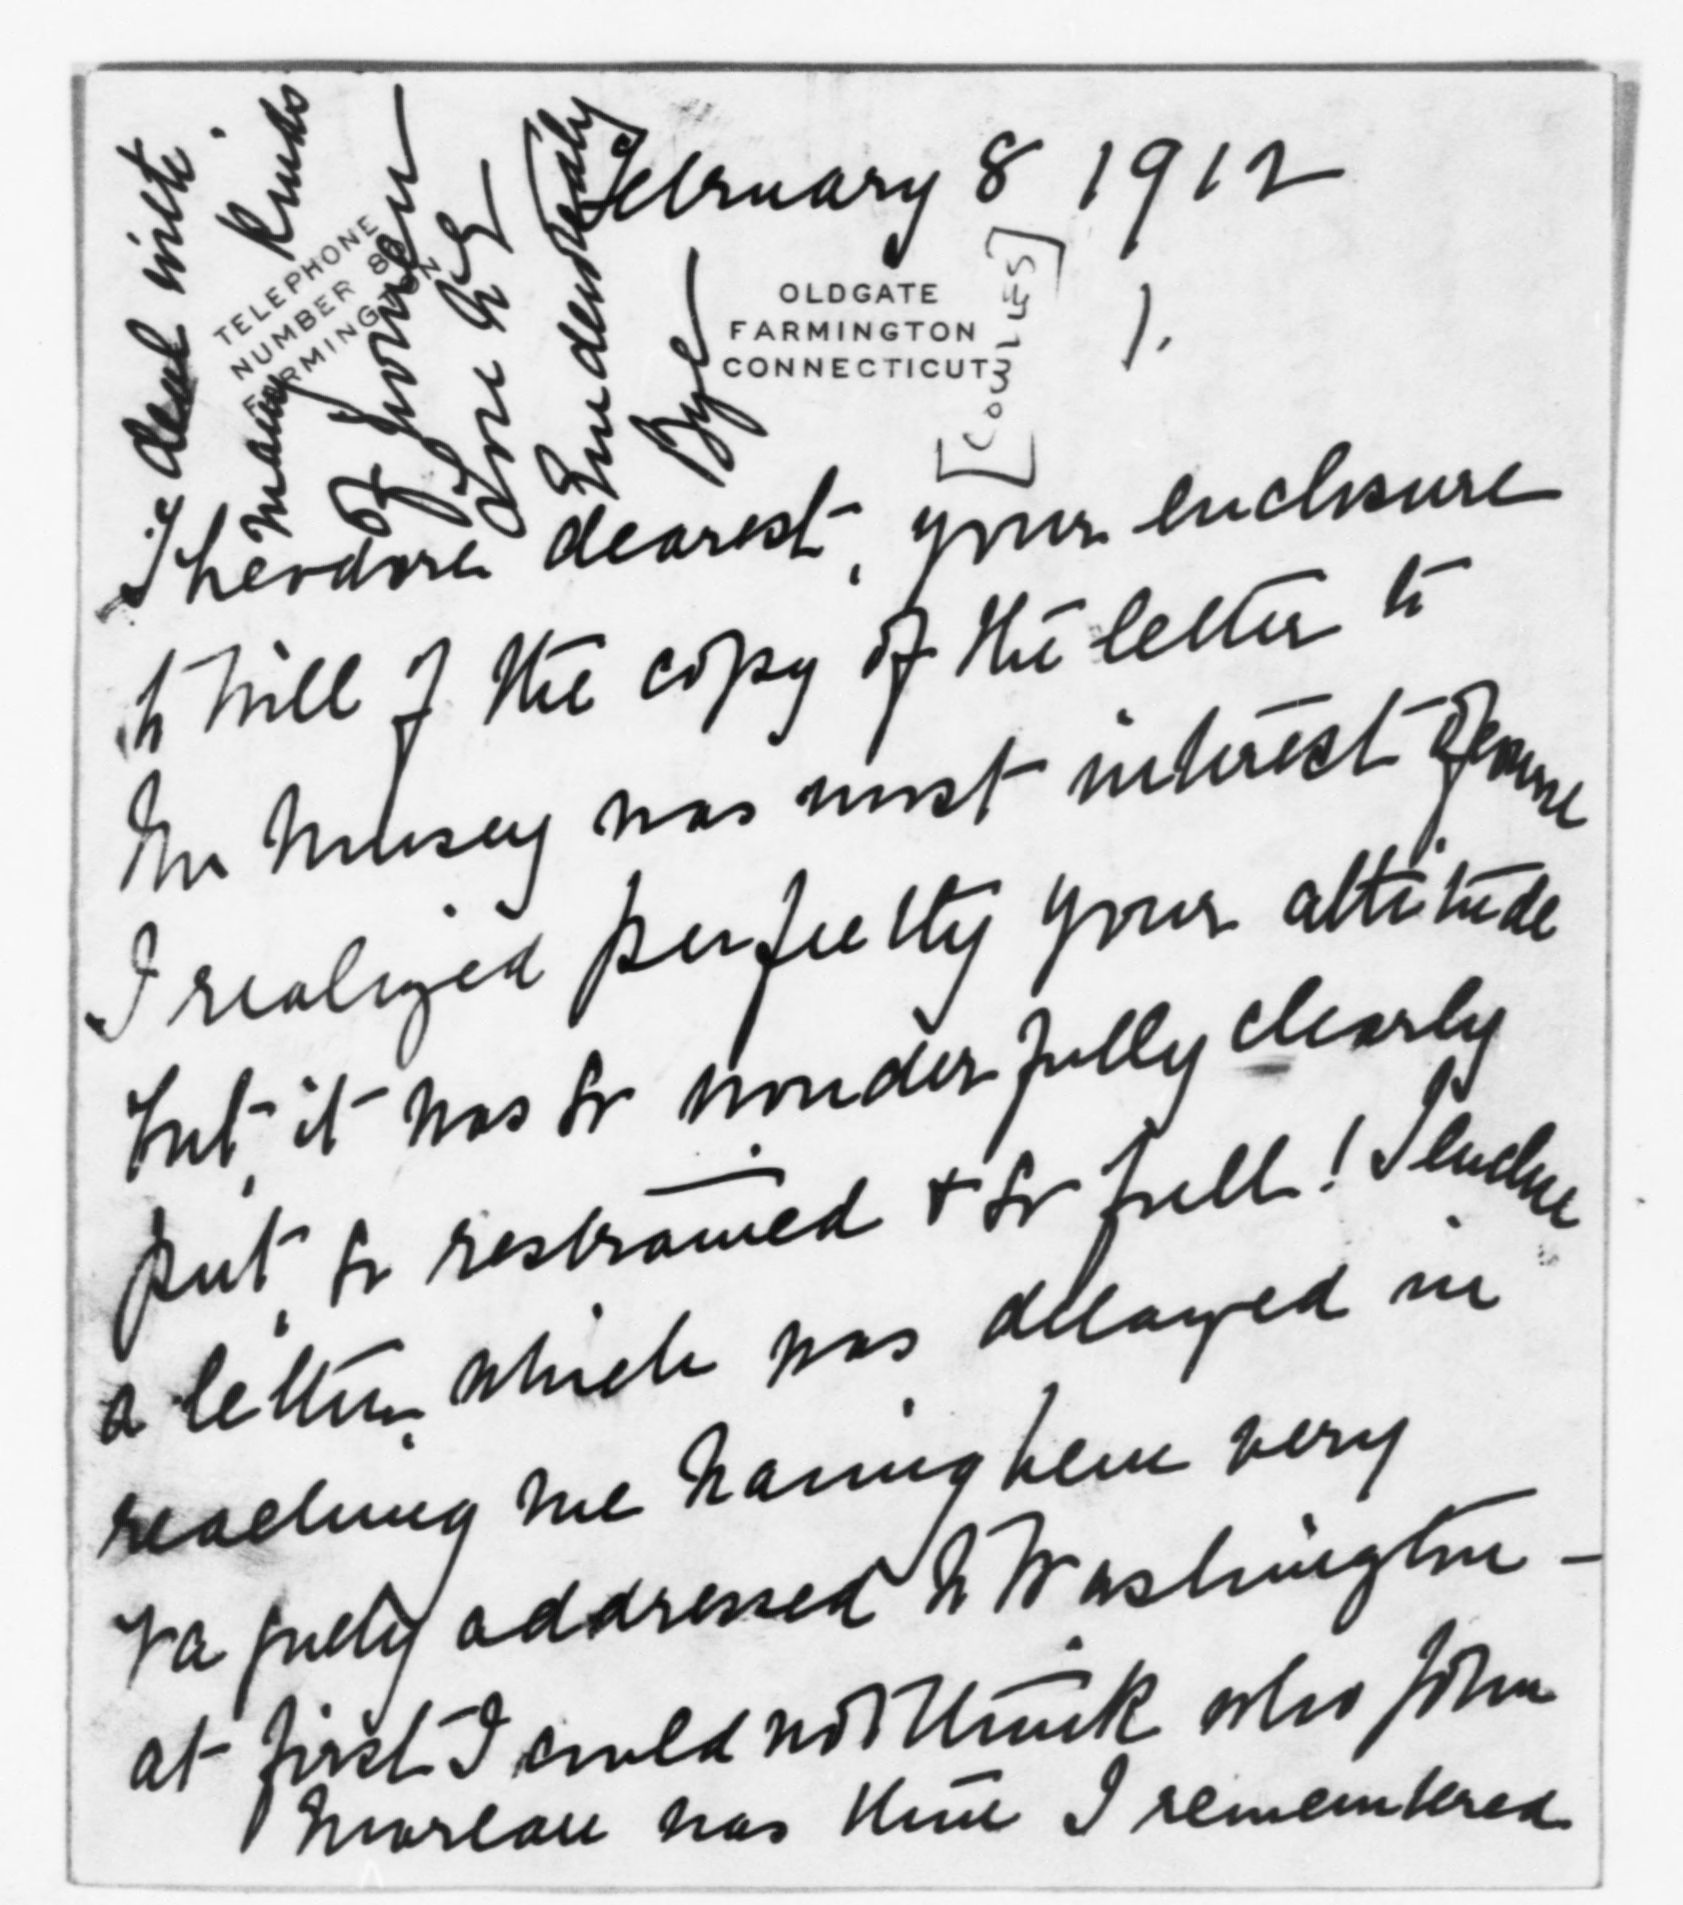 February 8 1912
1.
TELEPHONE
NUMBER 8
FARMINGTON
OLDGATE
FARMINGTON
CONNECTICUT
[COWLES]
Theodore dearest, your enclosure
to Will of the copy of the letter to
Mr Munsey was most interest of course
I realized perfectly your attitude
but, it was so wonderfully clearly
put, so restrained & so full! I enclose
a letter, which was delayed in
reaching me having been very
vaguely addressed to Washington –
at first I could not think who John
Moreau was then I remembered
deal with
many kinds
of
love to E
Bye